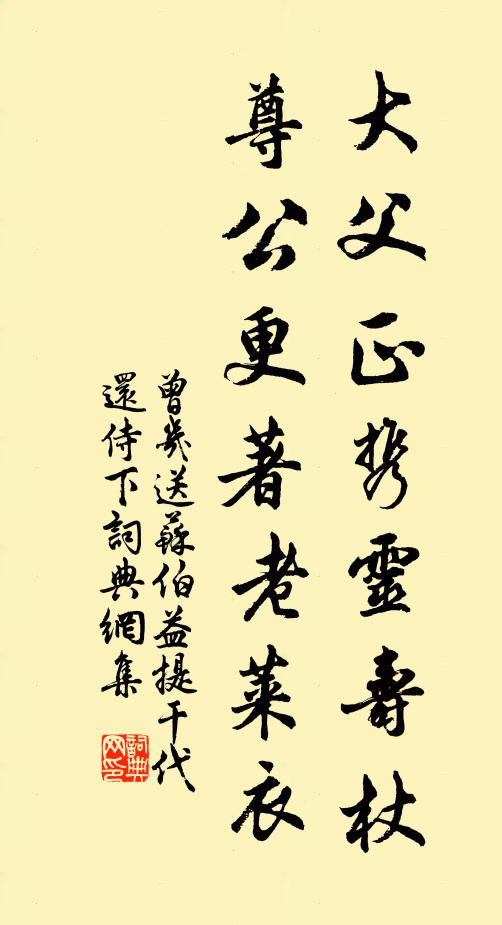 大父正携靈壽杖
尊公更著老萊衣
曾幾送蘇伯益提干代
還侍下詞典網集
詞典網印